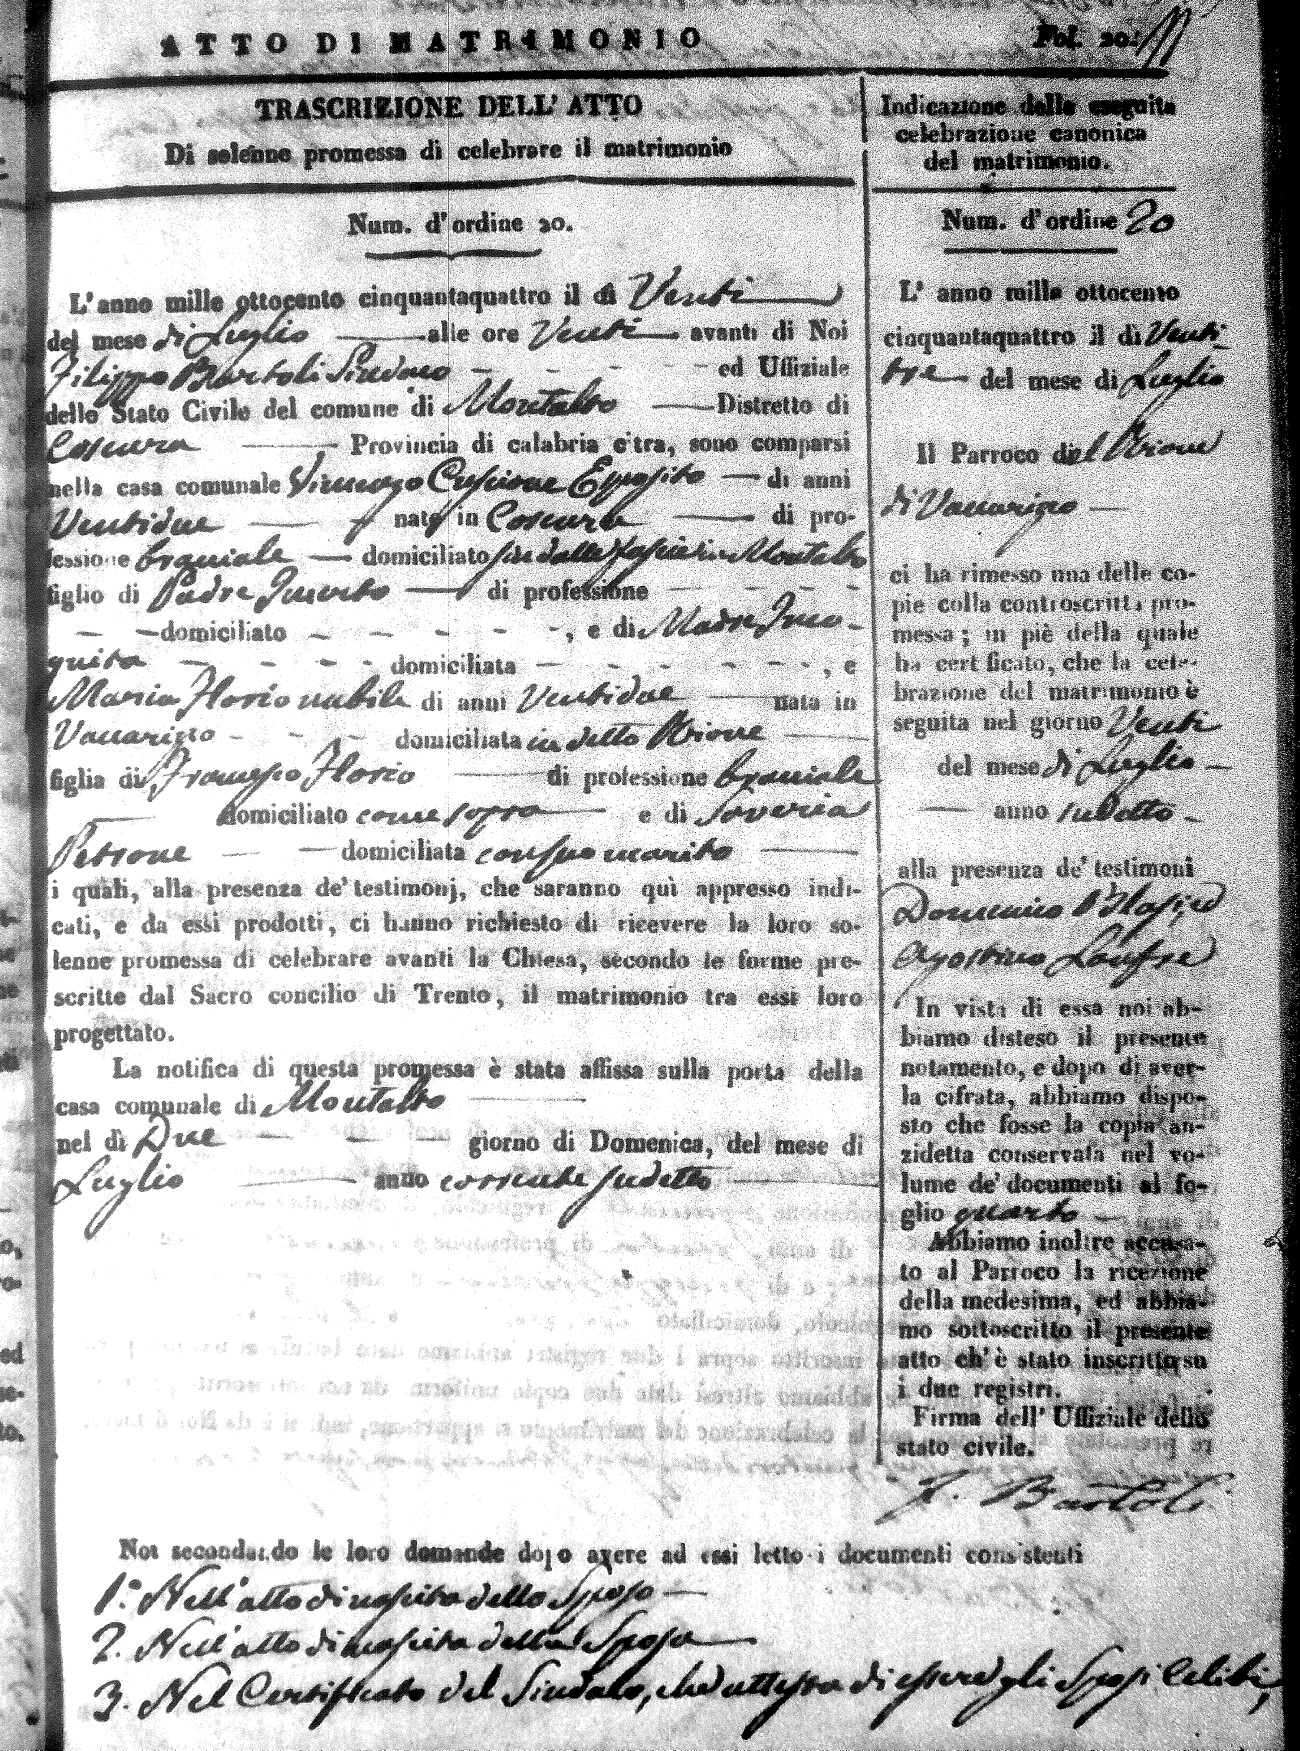 ATTO DI MATRIMONIO
Fol. 20.
TRASCRIZIONE DELL' ATTO
Di solenne promessa di celebrare il matrimonio
Num. d'ordine 20.
L'anno mille ottocento cinquantaquattro il dì Venti
del mese di Luglio alle ore Venti avanti di Noi
Filippo Bartoli Sindaco ed Uffiziale
dello Stato Civile del comune di Montalto Distretto di
Cosenza Provincia di calabria citra, sono comparsi
nella casa comunale Esposito di anni
Ventidue nato in Cosenza di pro-
fessione braciale domiciliato sin dalle fascie in Montalto
figlio di Padre Incerto di professione
domiciliato , e di Madre Inco-
gnita domiciliata , e
Maria Florio nubile di anni Ventidue nata in
Vaccarizzo domiciliata in detto Rione
figlia di Francesco Florio di professione braciale
domiciliato come sopra e di Soveria
Petrone domiciliata con suo marito
i quali, alla presenza de' testimonj, che saranno quì appresso indi-
cati, e da essi prodotti, ci hanno richiesto di ricevere la loro so-
lenne promessa di celebrare avanti la Chiesa, secondo le forme pre-
scritte dal Sacro concilio di Trento, il matrimonio tra essi loro
progettato.
La notifica di questa promessa è stata affissa sulla porta della
casa comunale di Montalto
nel dì Due giorno di Domenica, del mese di
Luglio anno corrente sudetto
Indicazione della seguita
celebrazione canonica
del matrimonio.
Num. d'ordine 20
L' anno mille ottocento
cinquantaquattro il dì Venti
tre del mese di Luglio
Il Parroco del Rione
di Vaccarizzo
ci ha rimesso una delle co-
pie colla controscritta pro-
messa; in piè della quale
ha certificato, che la cele-
brazione del matrimonio è
seguita nel giorno Venti
del mese di Luglio
anno sudetto
alla presenza de' testimoni
Domenico
Agostino
In vista di essa noi ab-
biamo disteso il presente
notamento, e dopo di aver-
la cifrata, abbiamo dispo-
sto che fosse la copia an-
zidetta conservata nel vo-
lume de' documenti al fo-
glio quarto
Abbiamo inoltre accusa-
to al Parroco la ricezione
della medesima, ed abbia-
mo sottoscritto il presente
atto ch'è stato inscritto su
i due registri.
Firma dell' Uffiziale dello
stato civile.
F. Bartoli
Noi secondando le loro domande dopo avere ad essi letto i documenti consistenti
1.° Nell'atto di nascita dello Sposo
2. Nell'atto di nascita della Sposa
3. Nel Certificato del Sindaco, che attesta di essere gli Sposi Celibi,